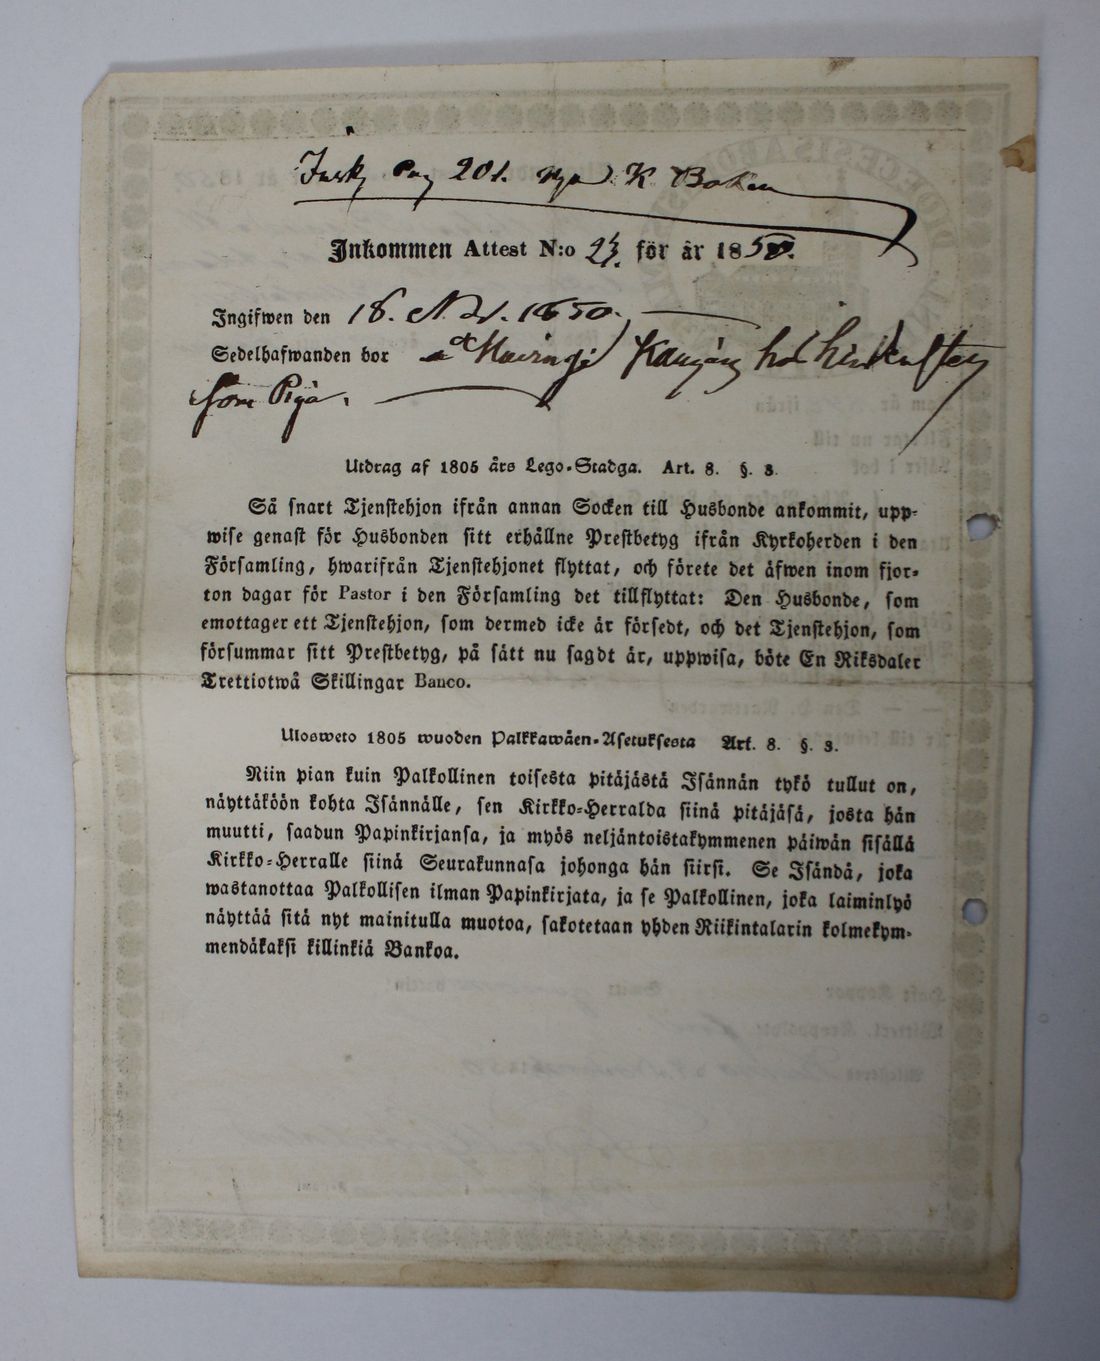 Insk. Pag 201. nya K Boken
Inkommen Attest N:o 23. för år 1850.
Ingifwen den 18. Nov. 1850.
Sedelhafwanden bor
som Piga.
Utdrag af 1805 års Lego-Stadga. Art. 8. §. 3.
Så snart Tjenstehjon ifrån annan Socken till Husbonde ankommit, upp-
wise genast för Husbonden sitt erhållne Prestbetyg ifrån Kyrkoherden i den
Församling, hwarifrån Tjenstehjonet flyttat, och förete det äfwen inom fjor-
ton dagar för Pastor i den Församling det tillflyttat: Den Husbonde, som
emottager ett Tjenstehjon, som dermed icke är försedt, och det Tjenstehjon, som
försummar sitt Prestbetyg, på sätt nu sagdt är, uppwisa, böte En Riksdaler
Trettiotwå Skillingar Banco.
Ulosweto 1805 wuoden Palkkawäen-Asetuksesta Art. 8. §. 3.
Niin pian kuin Palkollinen toisesta pitäjästä Isännän tykö tullut on,
näyttäköön kohta Isännälle, sen Kirkko-Herralda siinä pitäjäsä, josta hän
muutti, saadun Papinkirjansa, ja myös neljäntoistakymmenen päiwän sisällä
Kirkko-Herralle siinä Seurakunnasa johonga hän siirsi. Se Isändä, joka
wastanottaa Palkollisen ilman Papinkirjata, ja se Palkollinen, joka laiminlyö
näyttää sitä nyt mainitulla muotoa, sakotetaan yhden Riikintalarin kolmekym-
mendäkaksi killinkiä Bankoa.